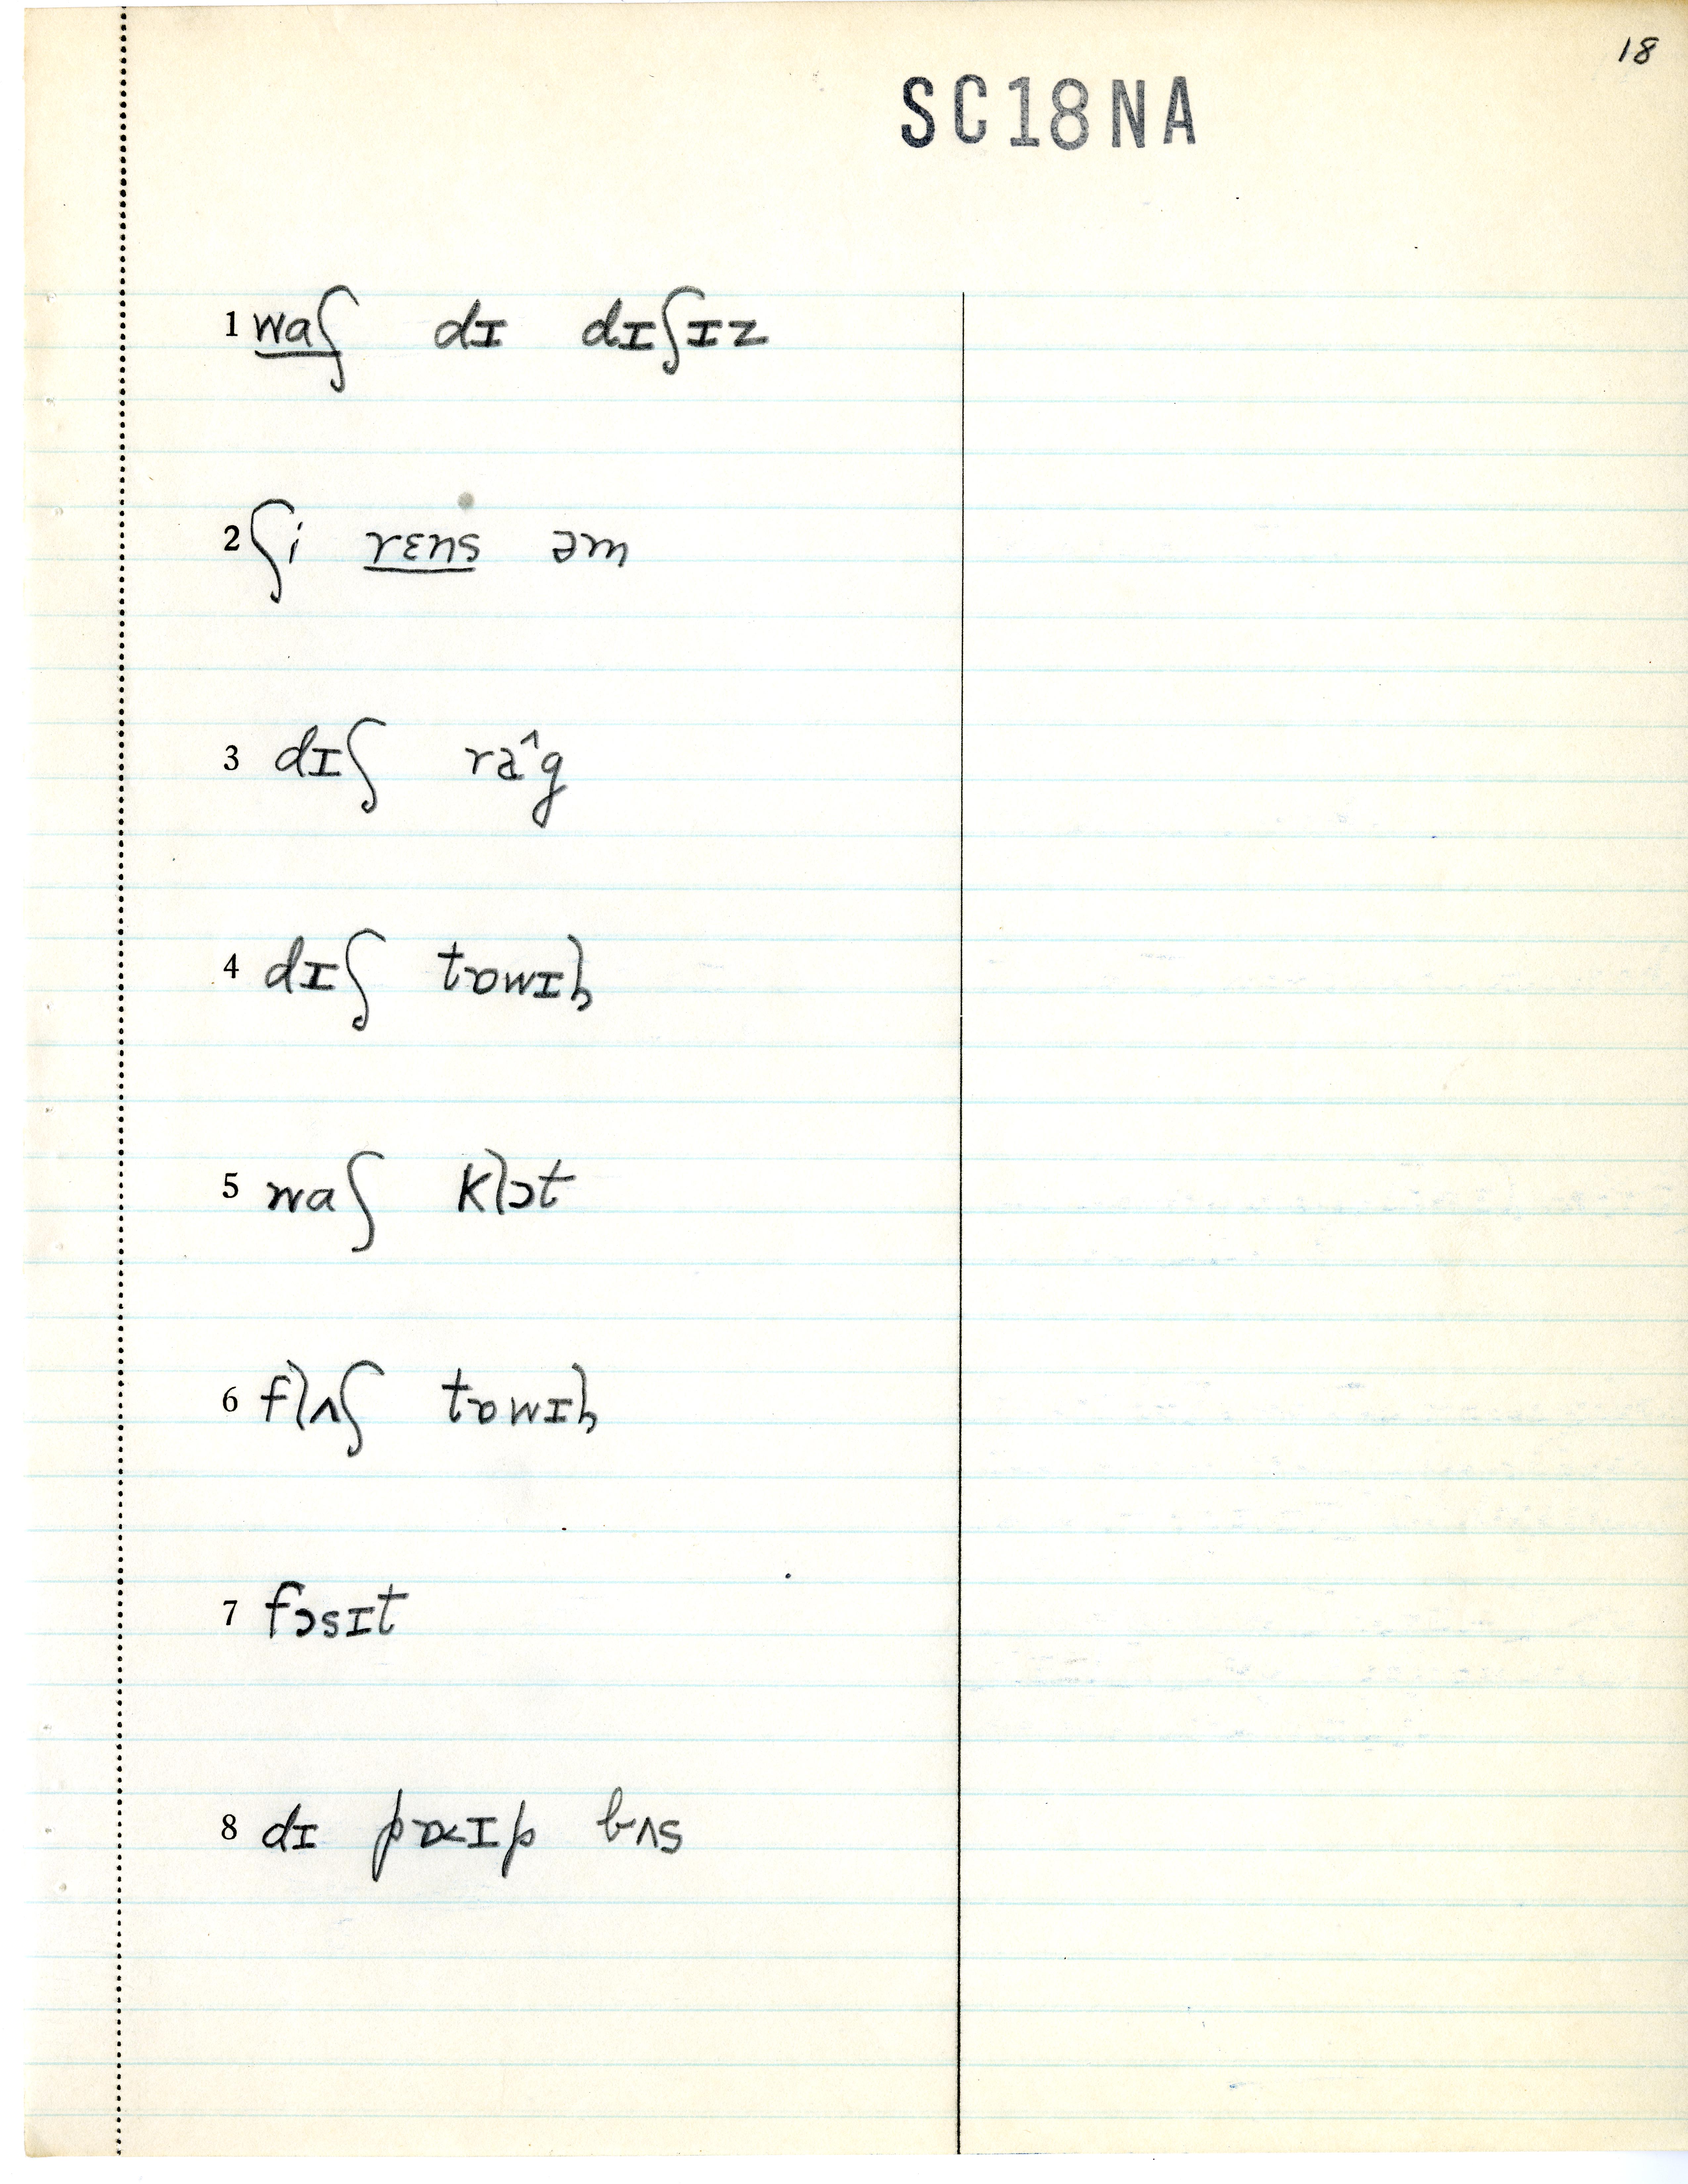 18
SC18NA
1 waʃ dɪ dɪʃɪz
2 ʃi rɛns əm
3 dɪʃ ra^g
4 dɪʃ tɒwɪɫ
5 waʃ klɔt
6 flʌʃ tɒwɪɫ
7 fɔsɪt
8 dɪ paɪp bʌs